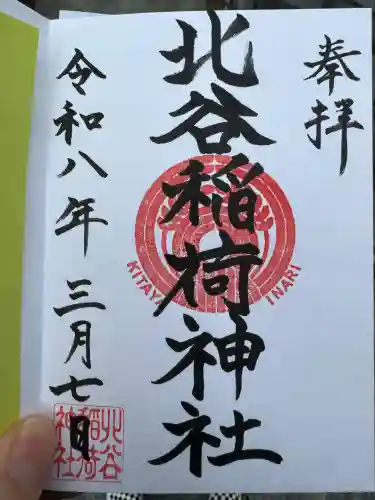 奉拝
北谷稲荷神社
KITAYA INARI
令和八年三月七日
北谷
稲荷
神社